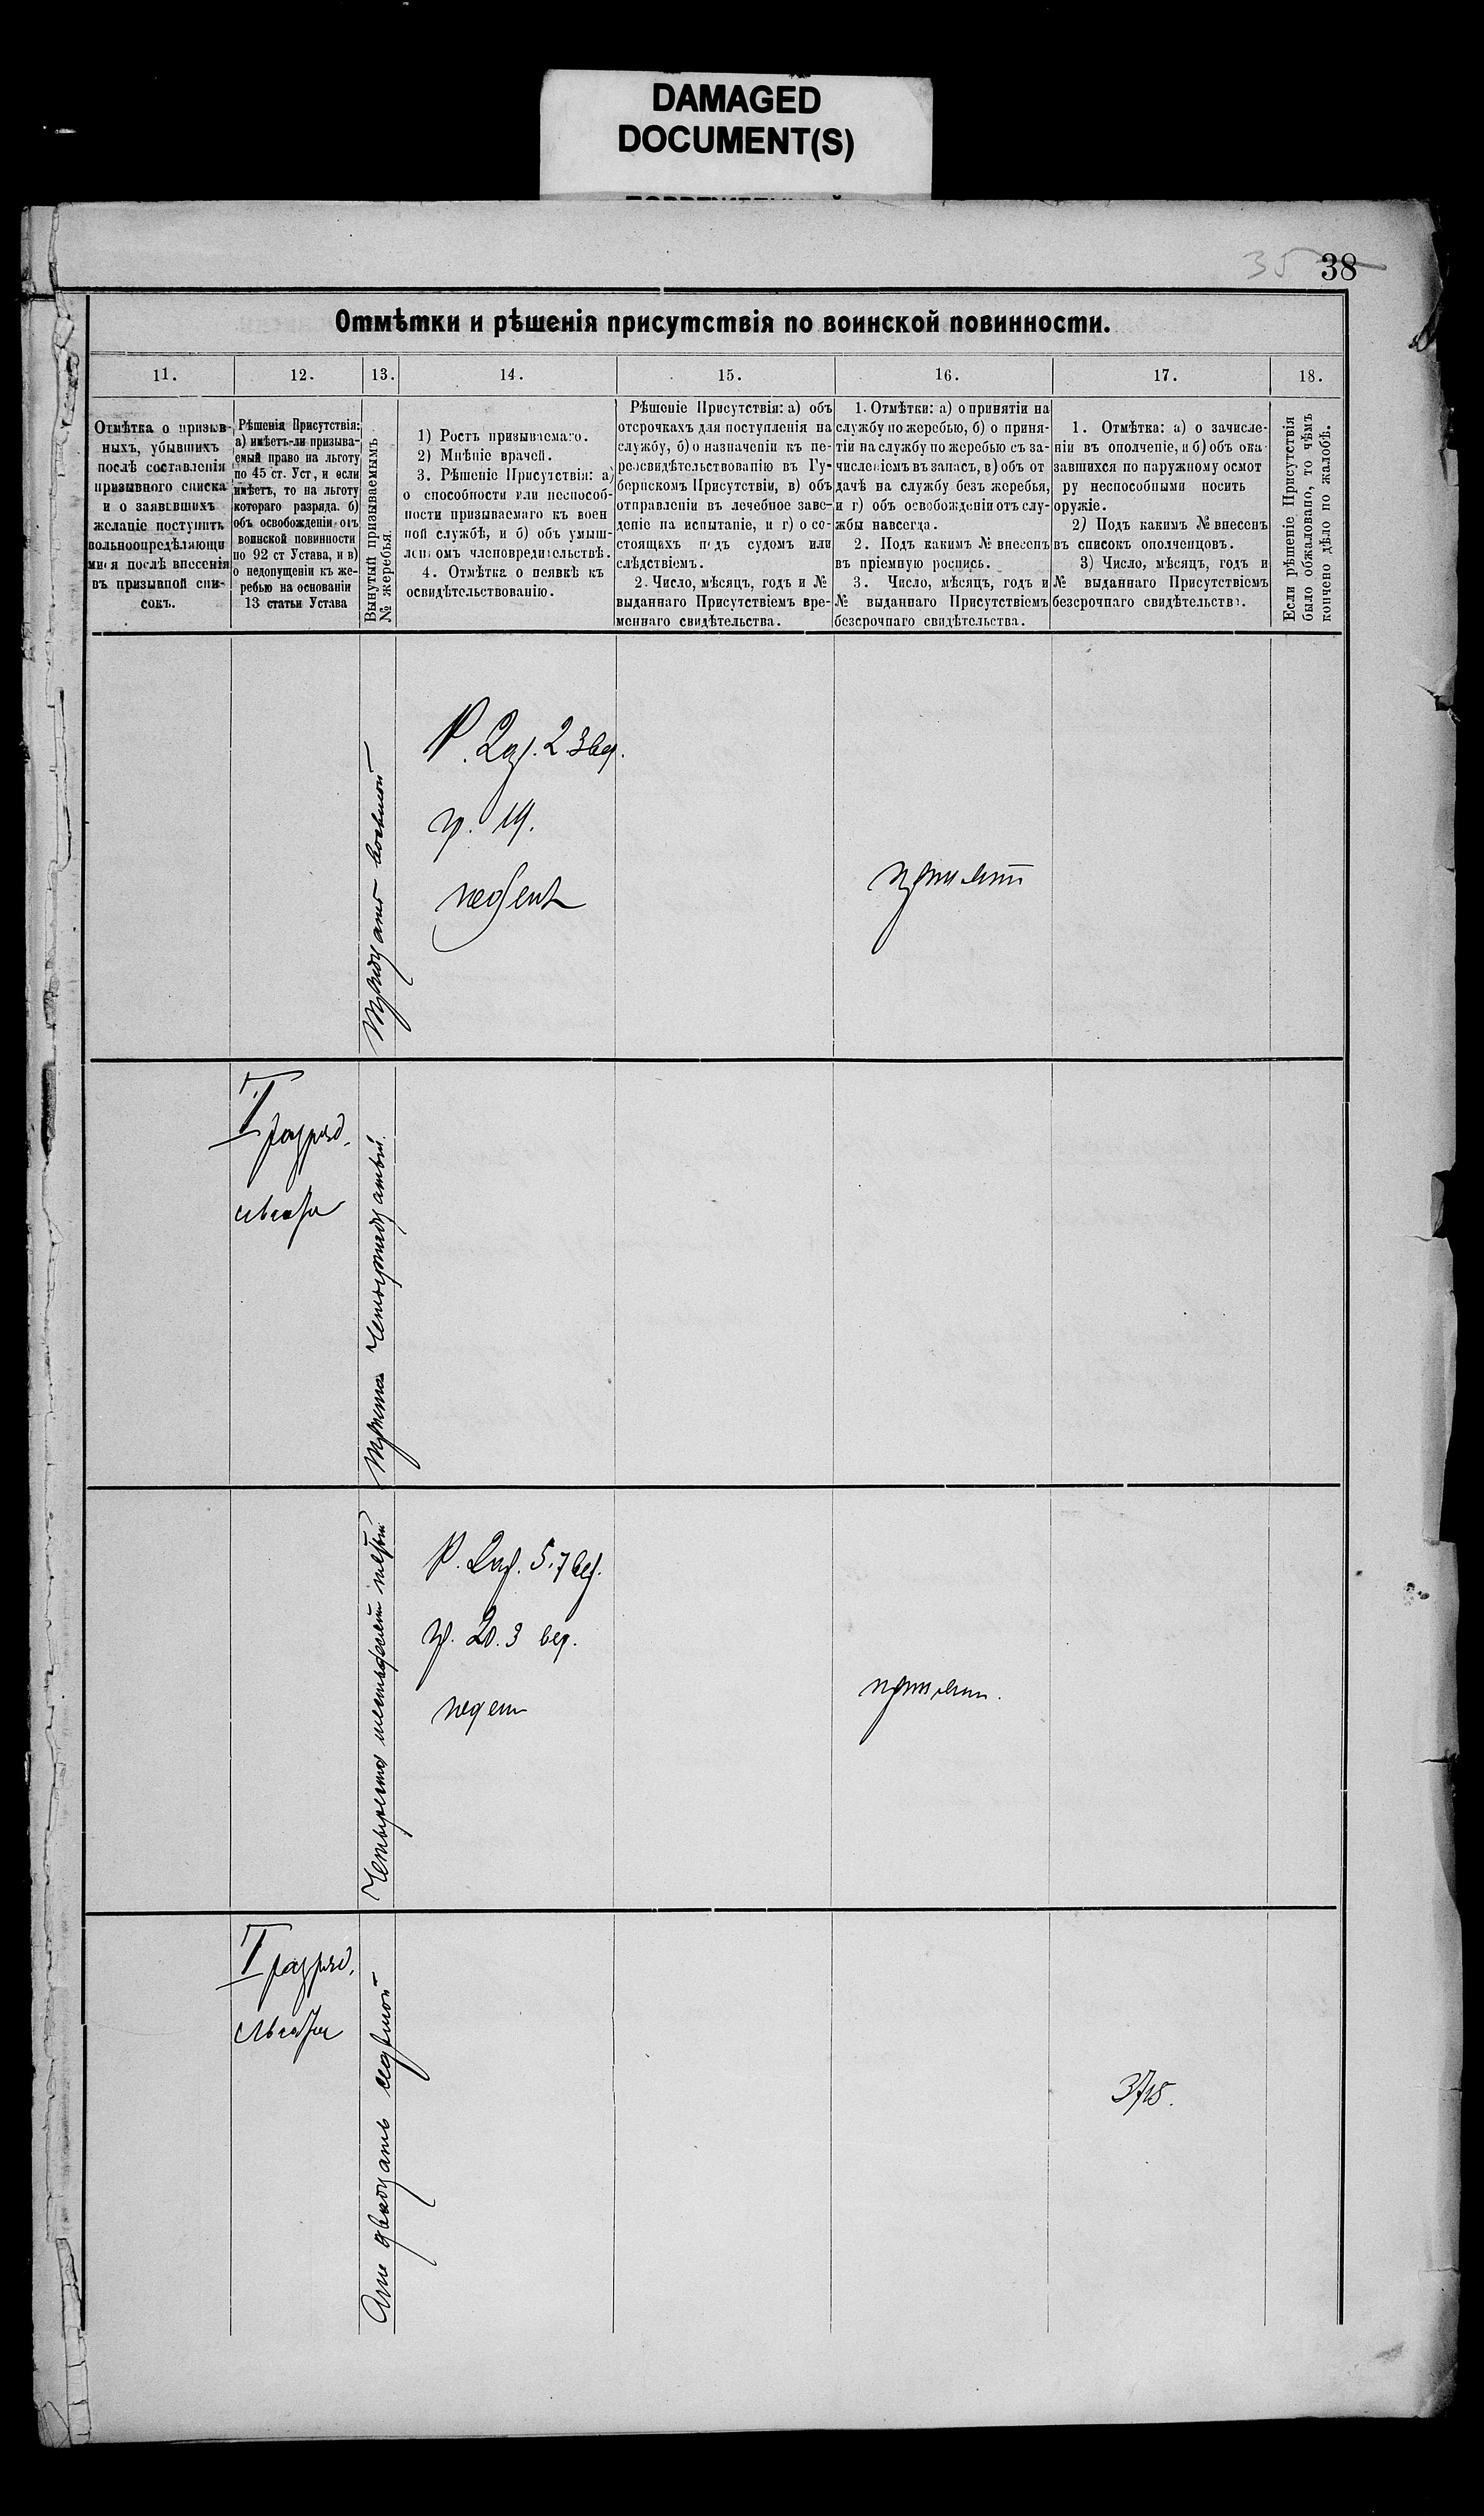 DAMAGED
DOCUMENT(S)
35 38
Отмѣтки и рѣшенія присутствія по воинской повинности.
11.
12.
13.
14.
15.
16.
17.
18.
Отмѣтка о призыв-
ныхъ, убывшихъ
послѣ составленія
призывного списка
и о заявившихъ
желаніе поступить
вольноопредѣляющи
мися послѣ внесенія
въ призывной спи-
сокъ.
Рѣшенія Присутствія:
а) имѣетъ-ли призыва-
емый право на льготу
по 45 ст. Уст, и если
имѣетъ, то на льготу
котораго разряда. б)
объ освобожденіи отъ
воинской повинности
по 92 ст Устава, и в)
о недопущеніи къ же-
ребью на основаніи
13 статьи Устава
Вынутый призываемымъ
№ жеребья.
1) Ростъ призываемаго.
2) Мнѣніе врачей.
3. Рѣшеніе Присутствія: а)
о способности или неспособ-
ности призываемаго къ воен
ной службѣ, и б) объ умыш-
леномъ членовредительствѣ.
4. Отмѣтка о неявкѣ къ
освидѣтельствованію.
Рѣшеніе Присутствія: а) объ
отсрочкахъ для поступленія на
службу, б) о назначеніи къ пе-
реосвидѣтельствованію въ Гу-
бернскомъ Присутствіи, в) объ
отправленіи въ лечебное заве-
деніе на испытаніе, и г) о со-
стоящихъ подъ судомъ или
слѣдствіемъ.
2. Число, мѣсяцъ, годъ и №
выданнаго Присутствіемъ вре-
меннаго свидѣтельства.
1. Отмѣтки: а) о принятіи на
службу по жеребью, б) о приня-
тіи на службу по жеребью съ за-
численіемъ въ запасъ, в) объ от
дачѣ на службу безъ жеребья,
и г) объ освобожденіи отъ слу-
жбы навсегда.
2. Подъ какимъ № внесенъ
въ пріемную роспись.
3. Число, мѣсяцъ, годъ и
№ выданнаго Присутствіемъ
безсрочнаго свидѣтельства.
1. Отмѣтка: а) о зачисле-
ніи въ ополченіе, и б) объ ока-
завшихся по наружному осмот
ру неспособными носить
оружіе.
2) Подъ какимъ № внесенъ
въ списокъ ополченцовъ.
3) Число, мѣсяцъ, годъ и
№ выданнаго Присутствіемъ
безсрочнаго свидѣтельства.
Если рѣшеніе Присутствія
было обжаловано, то чѣмъ
кончено дѣло по жалобѣ.
Тридцать восьмой
Р. 2 ар. 2.3 вер.
гр. 19.
годенъ
принятъ
I разряд.
льгота
Триста четырнадцатый.
Четыреста шестьдесят первый
Р. 2 ар. 5.7 вер.
гр. 20.3 вер.
годен
принятъ.
I разряд.
льгота
Сто двадцать седьмой
3715.